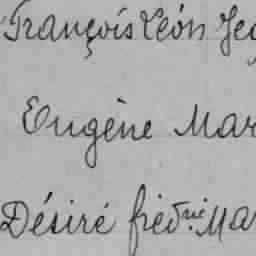 François Léon Je
Eugène Mar
Désiré fréd.ric Ma